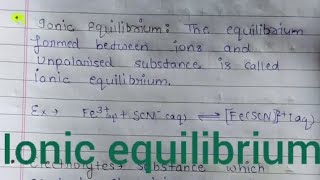 Ionic equilibrium: The equilibrium
formed between ions and
Unpolarised substance is called
ionic equilibrium.
Ex → Fe³⁺(aq) + SCN⁻(aq) ⇌ [Fe(SCN)]²⁺(aq)
Ionic equilibrium
substance which